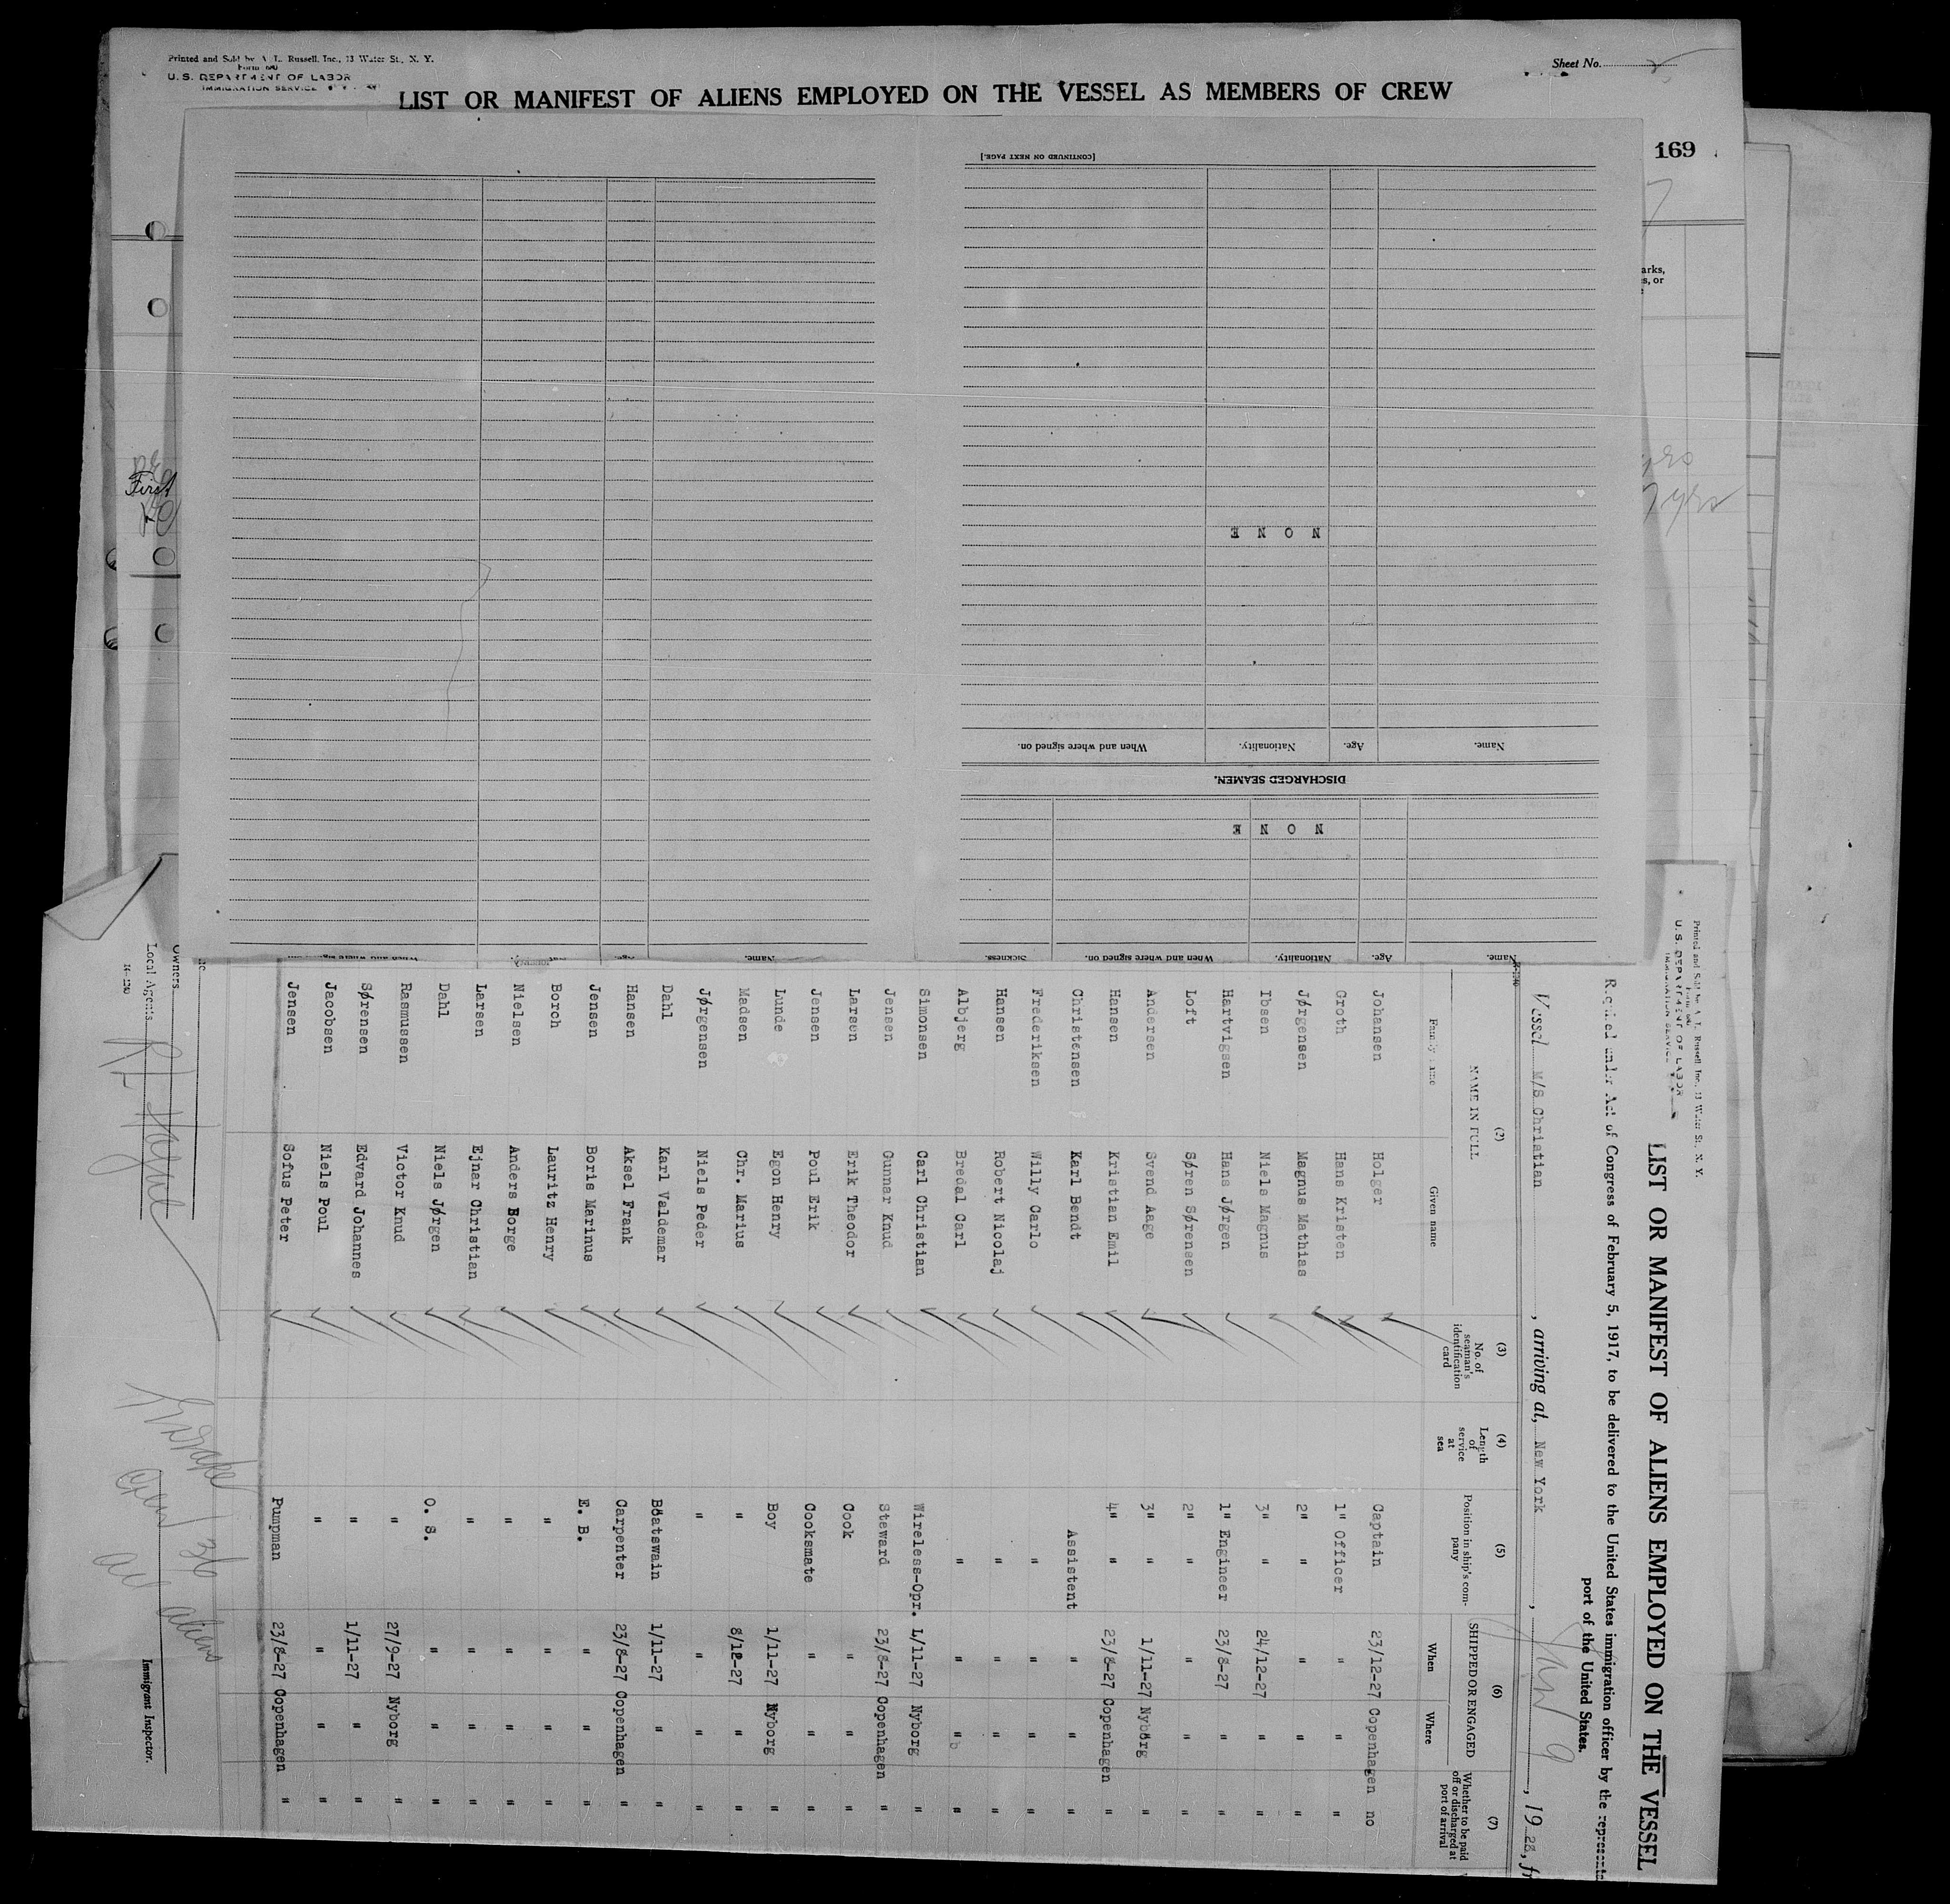 Printed and Sold by A. L. Russell, Inc., 13 Water St., N. Y.
Form 680
U. S. DEPARTMENT OF LABOR
IMMIGRATION SERVICE
Sheet No.
LIST OR MANIFEST OF ALIENS EMPLOYED ON THE VESSEL AS MEMBERS OF CREW
169
arks,
s, or
7 yrs
First
[CONTINUED ON NEXT PAGE.]
N O N E
Name. Age. Nationality. When and where signed on.
DISCHARGED SEAMEN.
N O N E
Name. Age. Nationality. When and where signed on. Sickness.
Name. Age. When and where
Printed and Sold by A. L. Russell, Inc., 13 Water St., N. Y.
Form 680
U. S. DEPARTMENT OF LABOR
IMMIGRATION SERVICE
LIST OR MANIFEST OF ALIENS EMPLOYED ON THE VESSEL
Required under Act of Congress of February 5, 1917, to be delivered to the United States immigration officer by the represent
port of the United States.
Vessel M/S Christian , arriving at, New York , Jany 9 , 19 28, fr
(2) (3) (4) (5) (6) (7)
NAME IN FULL No. of seaman's identification card Length of service at sea Position in ship's company SHIPPED OR ENGAGED Whether to be paid off or discharged at port of arrival
Family name Given name When Where
Johansen Holger Captain 23/12-27 Copenhagen no
Groth Hans Kristen 1" Officer " " "
Jørgensen Magnus Mathias 2" " " " "
Ibsen Niels Magnus 3" " 24/12-27 " "
Hartvigsen Hans Jørgen 1" Engineer 23/8-27 " "
Loft Søren Sørensen 2" " " " "
Andersen Svend Aage 3" " 1/11-27 Nyborg "
Hansen Kristian Emil 4" " 23/8-27 Copenhagen "
Christensen Karl Bendt Assistent " " "
Frederiksen Willy Carlo " " " "
Hansen Robert Nicolaj " " " "
Albjerg Bredal Carl " " " "
Simonsen Carl Christian Wireless-Opr. 1/11-27 Nyborg "
Jensen Gunnar Knud Steward 23/8-27 Copenhagen "
Larsen Erik Theodor Cook " " "
Jensen Poul Erik Cooksmate " " "
Lunde Egon Henry Boy 1/11-27 Nyborg "
Madsen Chr. Marius " 8/12-27 " "
Jørgensen Niels Peder " " " "
Dahl Karl Valdemar Båatswain 1/11-27 " "
Hansen Aksel Frank Carpenter 23/8-27 Copenhagen "
Jensen Boris Marinus E. B. " " "
Borch Lauritz Henry " " " "
Nielsen Anders Borge " " " "
Larsen Ejnar Christian " " " "
Dahl Niels Jørgen O. S. " " "
Rasmussen Victor Knud " 27/9-27 Nyborg "
Sørensen Edvard Johannes " 1/11-27 " "
Jacobsen Niels Poul " " " "
Jensen Sofus Peter Pumpman 23/8-27 Copenhagen "
Owners
Local Agents
14-1240
Crew 36
all aliens
Immigrant Inspector.